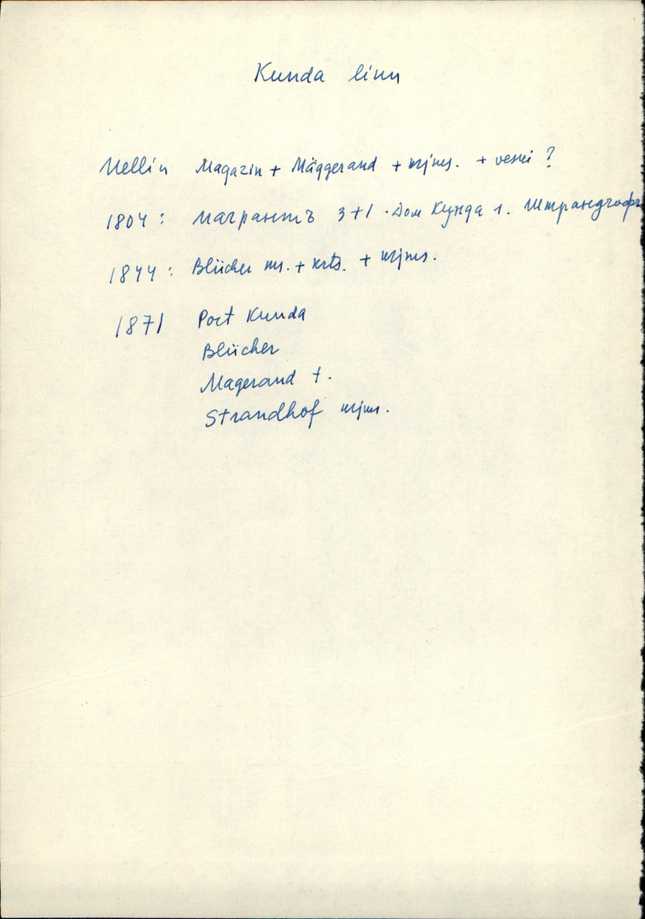 Kunda linn
Mellin Magazin + Mäggerand + mjms. + veski ?
1804: магрантъ 3+1 · Дом Кунда 1. Штрандгофъ
1844: Blücher ms. + krts. + mjms.
1871 Port Kunda
Blücher
Magerand t.
Strandhof mjms.